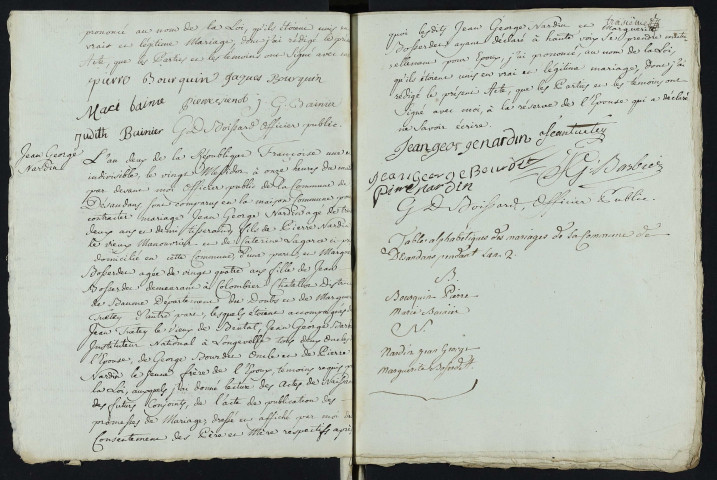 prononcé au nom de la Loi, qu'ils étoient unis en
vrai et légitime Mariage, dont j'ai rédigé le présent
Acte, que les Parties et les témoins ont Signé avec moi
pierre Bourquin Jaques Bourquin
Judith Bainier G D Boissard Officier public.
Jean George
Nardin
L'an deux de la République Françoise une et
indivisible, le vingt Messidor, à onze heures du matin
par devant moi Officier public de la Commune de
Désandans sont comparus en la maison Commune pour
contracter mariage Jean George Nardin agé de
deux ans et demi tisserand, fils de Pierre Nardin
le vieux Manouvrier et de Caterine Lagarce
domicilié en cette Commune, d'une part, et Marguerite
Bosserdet agée de vingt quatre ans fille de Jean
Bosserdet demeurant à Colombier Chatellot District
de Baume Département du Doubs et de Marguerite
Tuetey d'autre part, lesquels étoient accompagnés de
Jean Tuetey le vieux de Désandans, Jean George
Instituteur National à Longevelle tous deux oncles de
l'Epouse, de George Bourdre oncle et de Pierre
Nardin le jeune frère de l'Epoux témoins requis par
la Loi, auxquels j'ai donné lecture des Actes de Naissance
des futurs Conjoints, de l'acte de publication des
promesses de Mariage, dressé et affiché par moi
Consentement des Père et Mère respectifs après
quoi lesdits Jean George Nardin et Marguerite
Bosserdet ayant déclaré à haute voix se prendre
mutuellement pour Epoux, j'ai prononcé au nom de la Loi,
qu'ils étoient unis en vrai et légitime mariage, dont j'ai
rédigé le présent Acte, que les Parties et les témoins ont
Signé avec moi, à la réserve de l'Epouse qui a déclaré
ne Savoir écrire.
Jean george nardin
Jean George Bourdre
Pierre nardin
G D Boissard, Officier Public.
Table alphabétique des mariages de la Commune de
Désandans pendant l'an 2.
B
Bourquin Pierre
Marie Bainier
N
Nardin Jean George
Marguerite Bosserdet